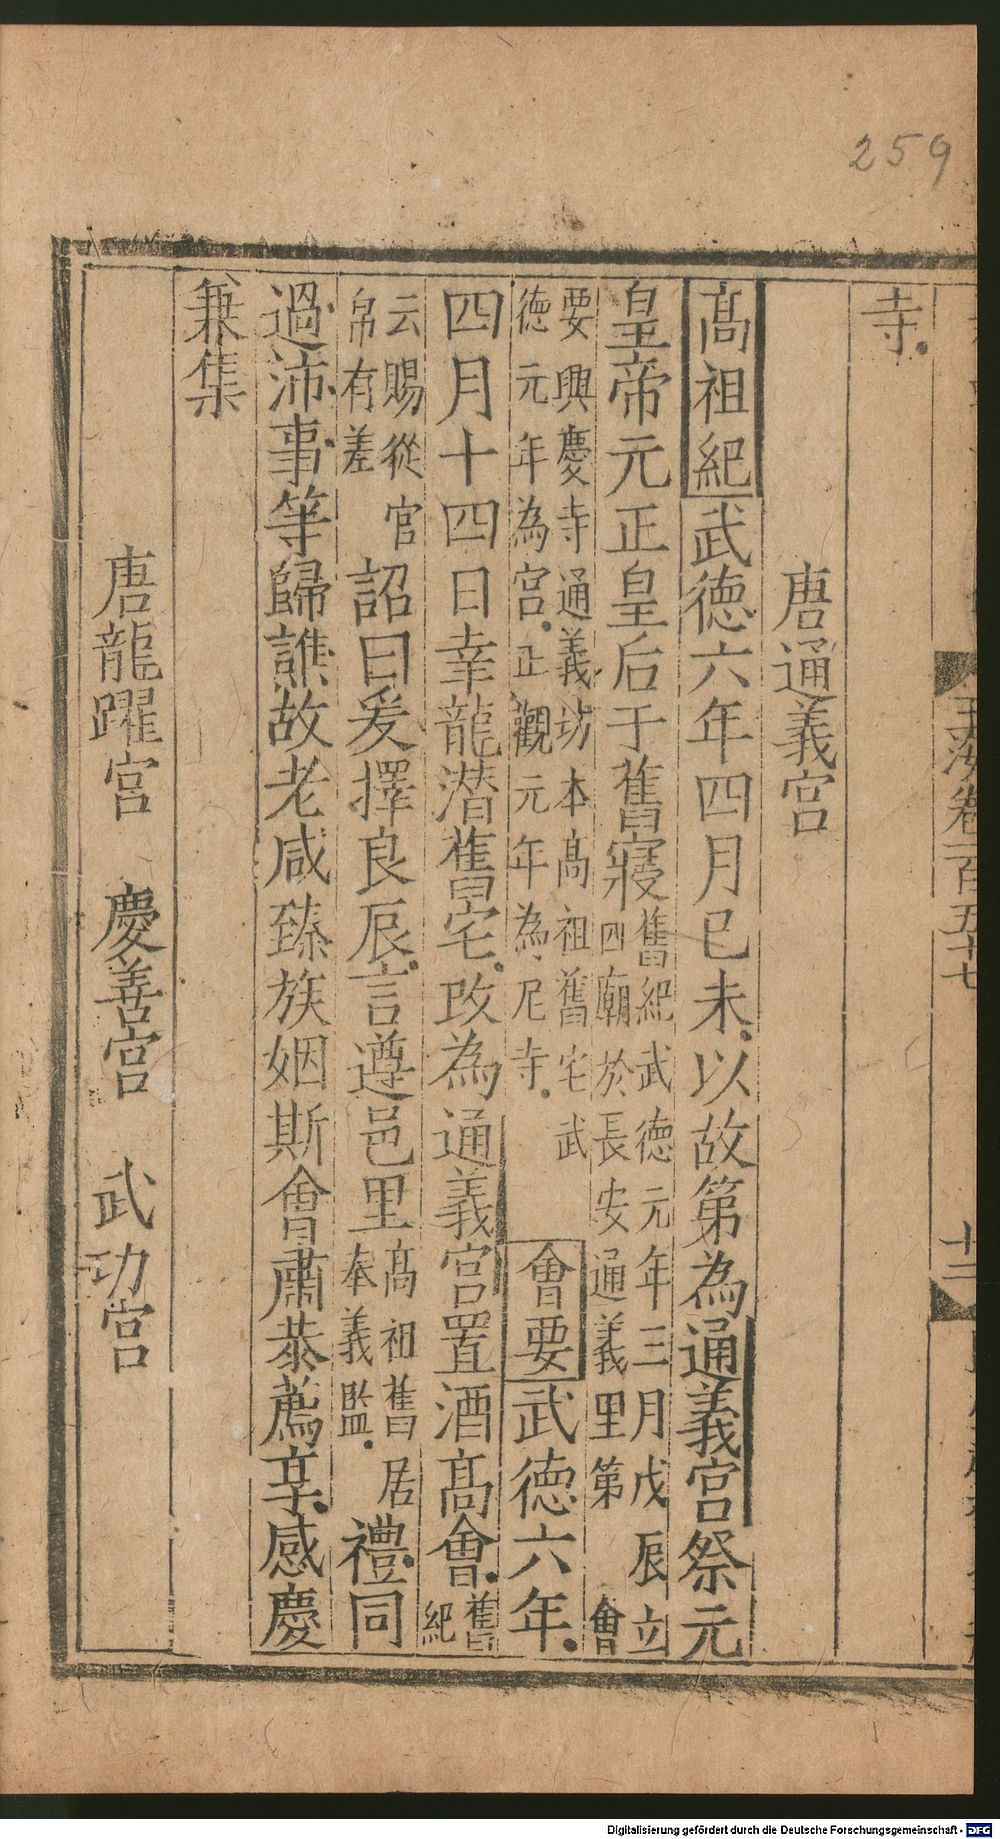 259
玉海卷一百五十七
十二
寺
唐通義宮
高祖紀武德六年四月己未以故第為通義宮祭元
皇帝元正皇后于舊寢舊紀武德元年三月戊辰立
四廟於長安通義里第會
要興慶寺通義坊本高祖舊宅武
德元年為宮正觀元年為尼寺會要武德六年
四月十四日幸龍潛舊宅改為通義宮置酒高會舊
紀
云賜從官
帛有差詔曰爰擇良辰言遵邑里高祖舊居
奉義監禮同
過沛事等歸譙故老咸臻族姻斯會肅恭薦享感慶
兼集
唐龍躍宮 慶善宮 武功宮
Digitalisierung gefördert durch die Deutsche Forschungsgemeinschaft - DFG